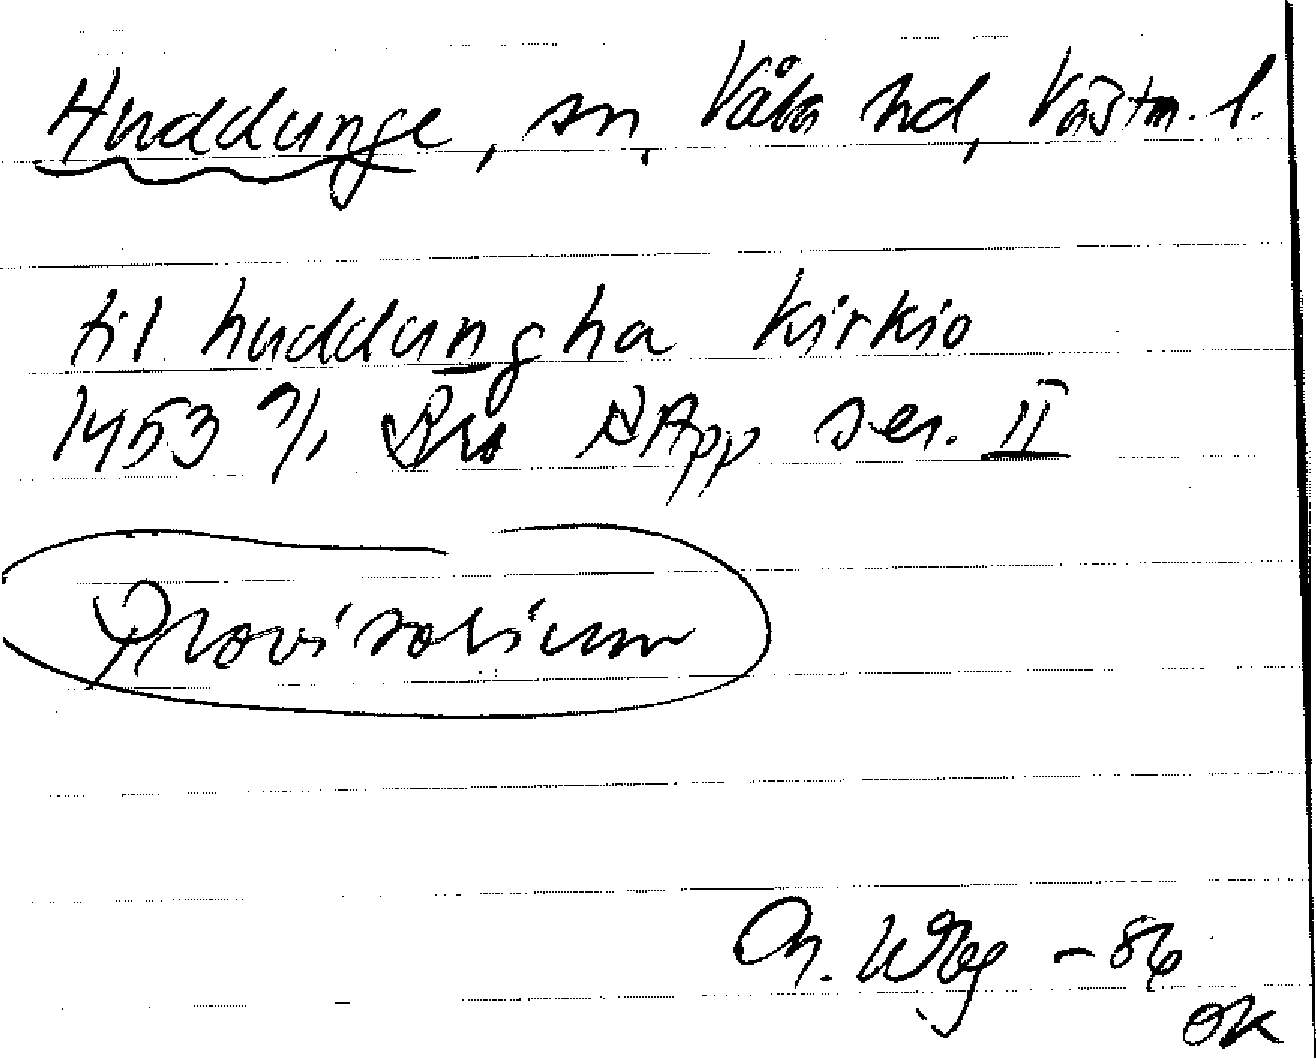 Huddunge, sn, Våla hd, Västm. l.
til huddungha kirkio
1453 RApp ser. II
Provisorium
-86
OK